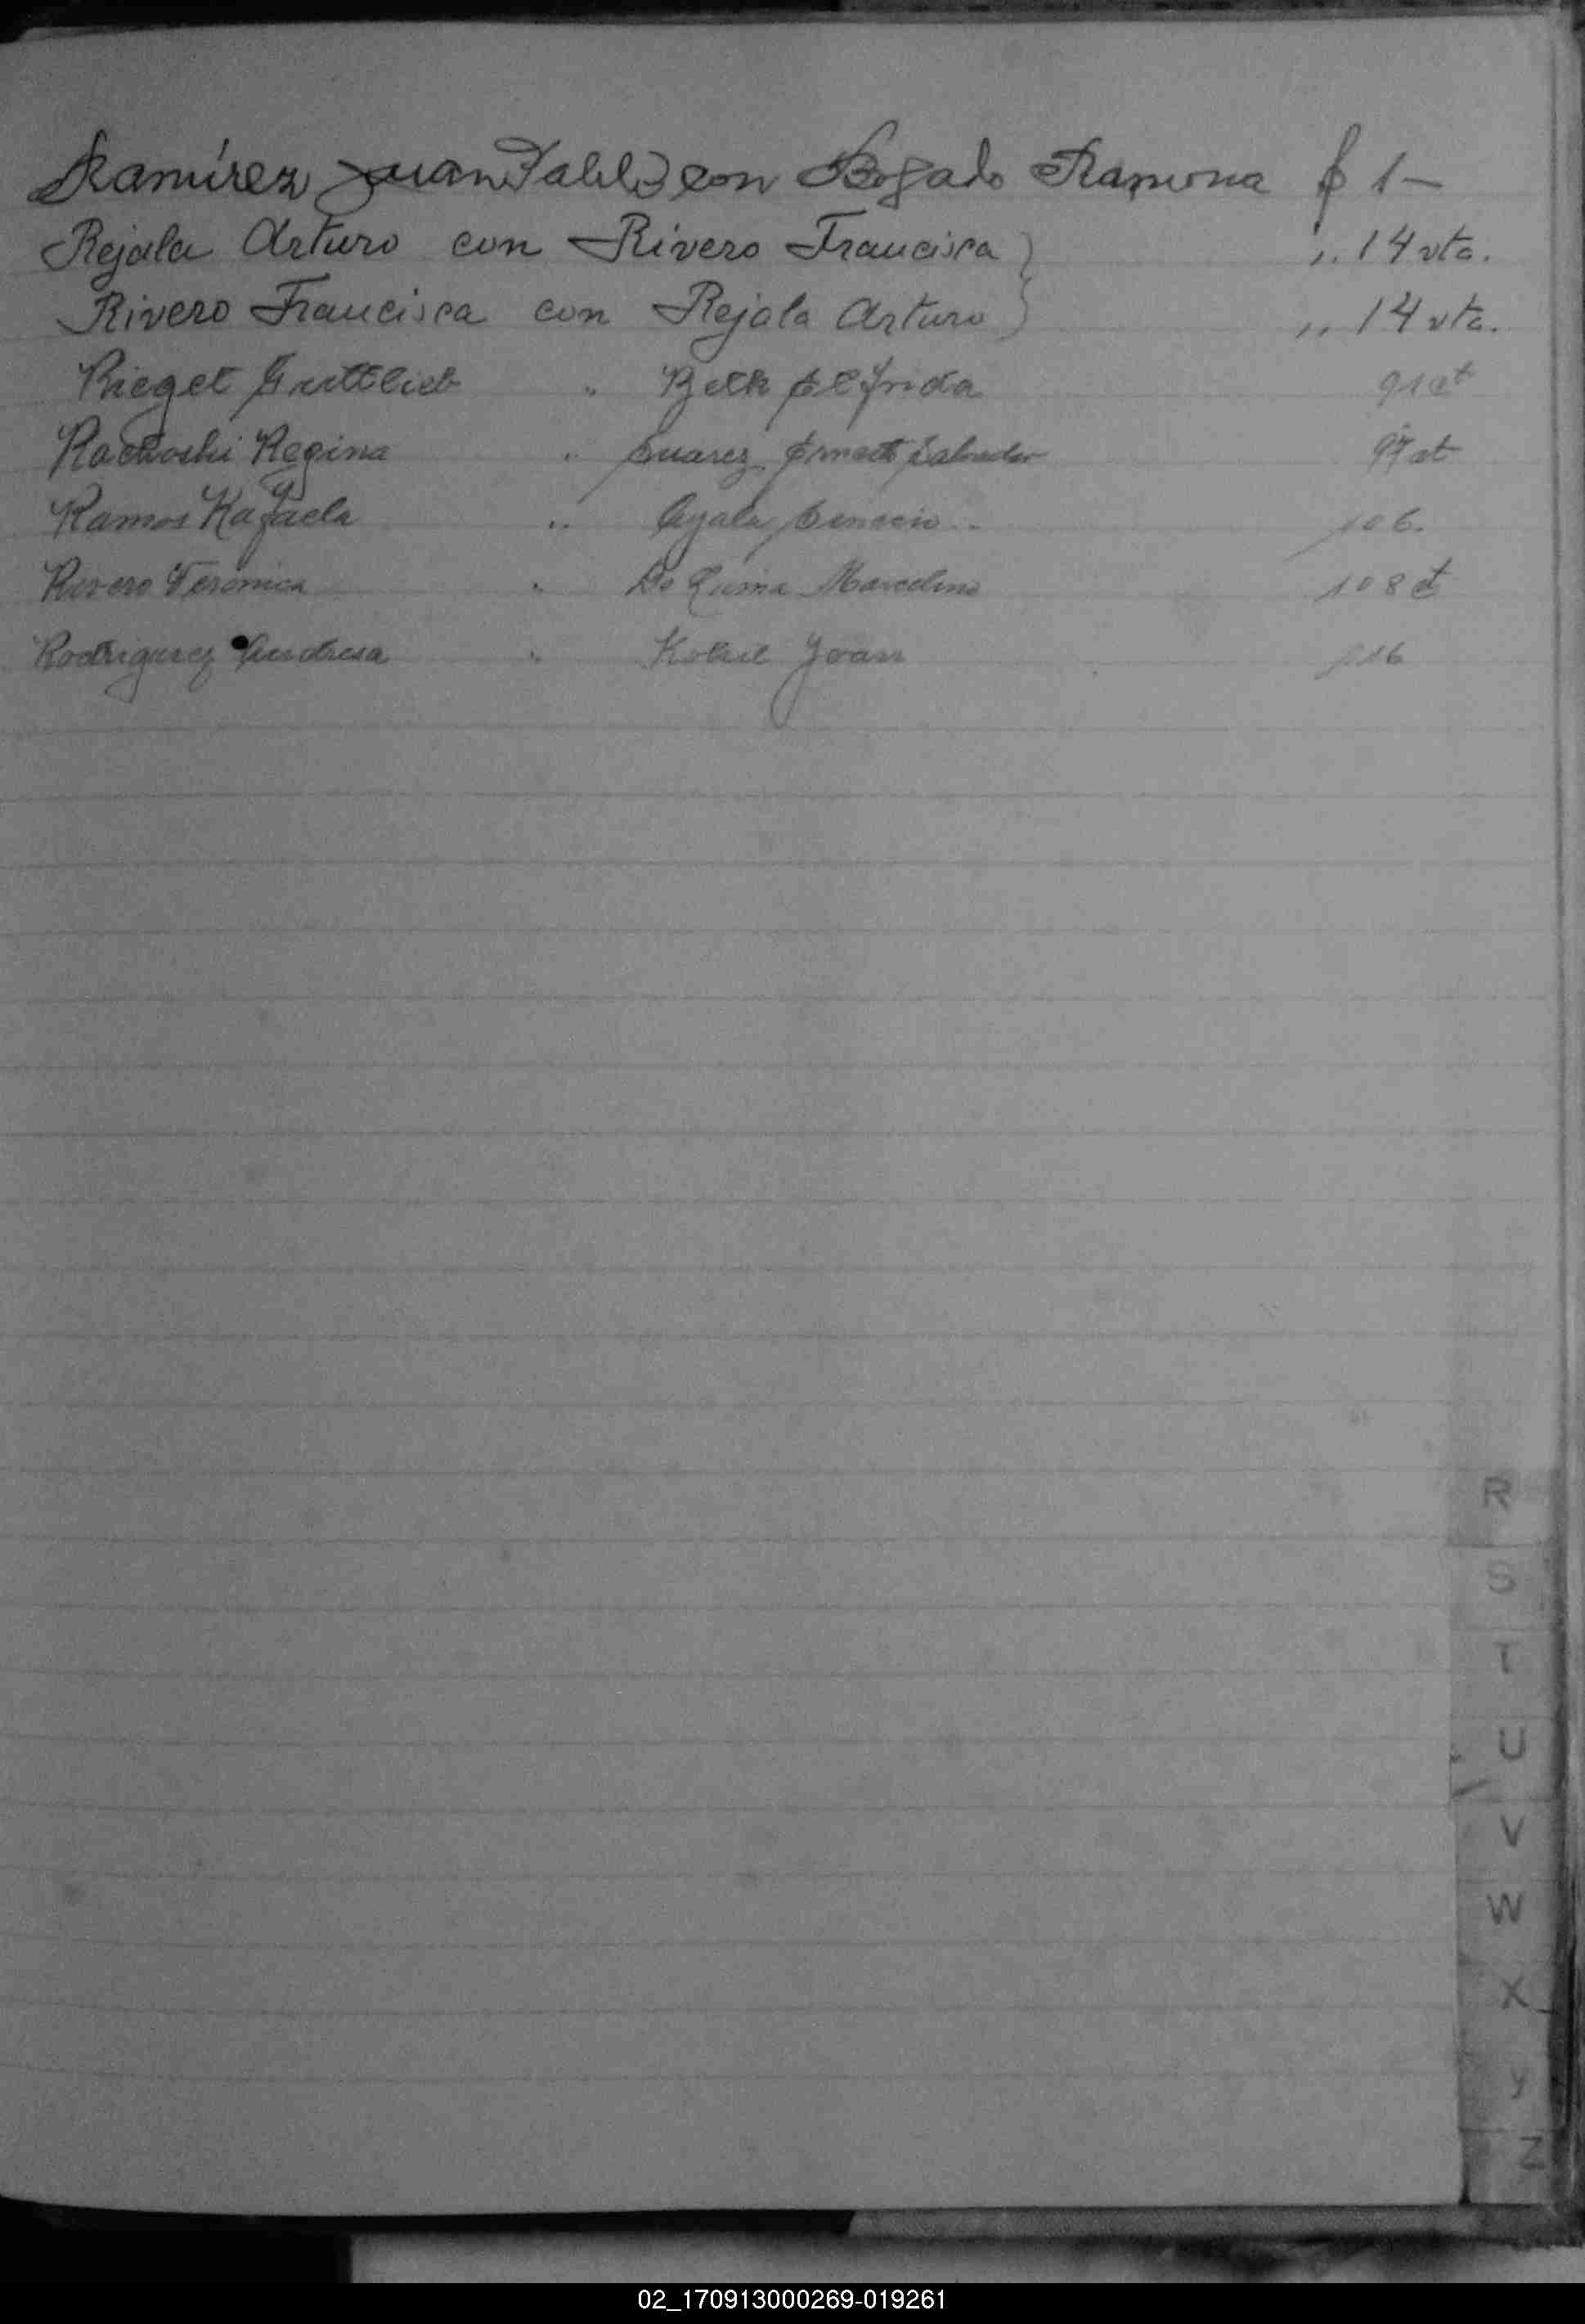 Ramírez Juan Pablo con Bogado Ramona $ 1-
Rejala Arturo con Rivero Francisca } ,, 14 vta.
Rivero Francisca con Rejala Arturo } ,, 14 vta.
Rieget Gottlieb " Beck Elfrida 91
Regina " Suarez Ernesto Salvador 97
Ramos Rafaela " Ayala 106.
Rivero Veronica " De Lima Marcelino 108
Rodriguez Andresa " Juan 116
R
S
T
U
V
W
X
Y
Z
02_170913000269-019261